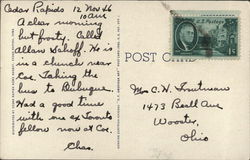 Cedar Rapids 12 Nov 46
10am
A clear morning
but frosty. Called
Allan Sakoff. He is
in a church near
Coe. Taking the
bus to Dubuque.
Had a good time
with one ex Toronto
fellow now at Coe.
Chas.
POST CARD
U.S. Postage
1¢
Mrs C. H. Troutman
1473 Beall Ave
Wooster,
Ohio